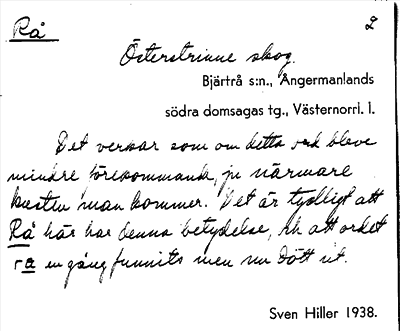 Rå 2
Österstrinne skog.
Bjärtrå s:n., Ångermanlands
södra domsagas tg., Västernorrl. l.
Det verkar som om detta ord bleve
mindre förekommande, ju närmare
kusten man kommer. Det är tydligt att
Rå här har denna betydelse, och att ordet
ra en gång funnits men nu dött ut.
Sven Hiller 1938.